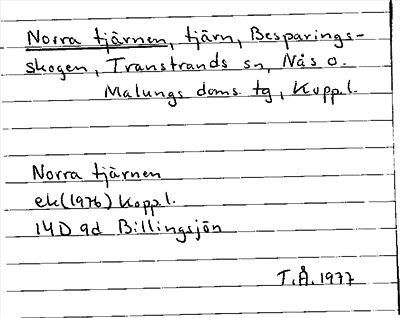 Norra tjärnen, tjärn, Besparings-
skogen, Transtrands sn, Nås o.
Malungs doms. tg, Koppl.
Norra tjärnen
ek(1976) Koppl.
14D 9d Billingsjön
T.Å. 1977